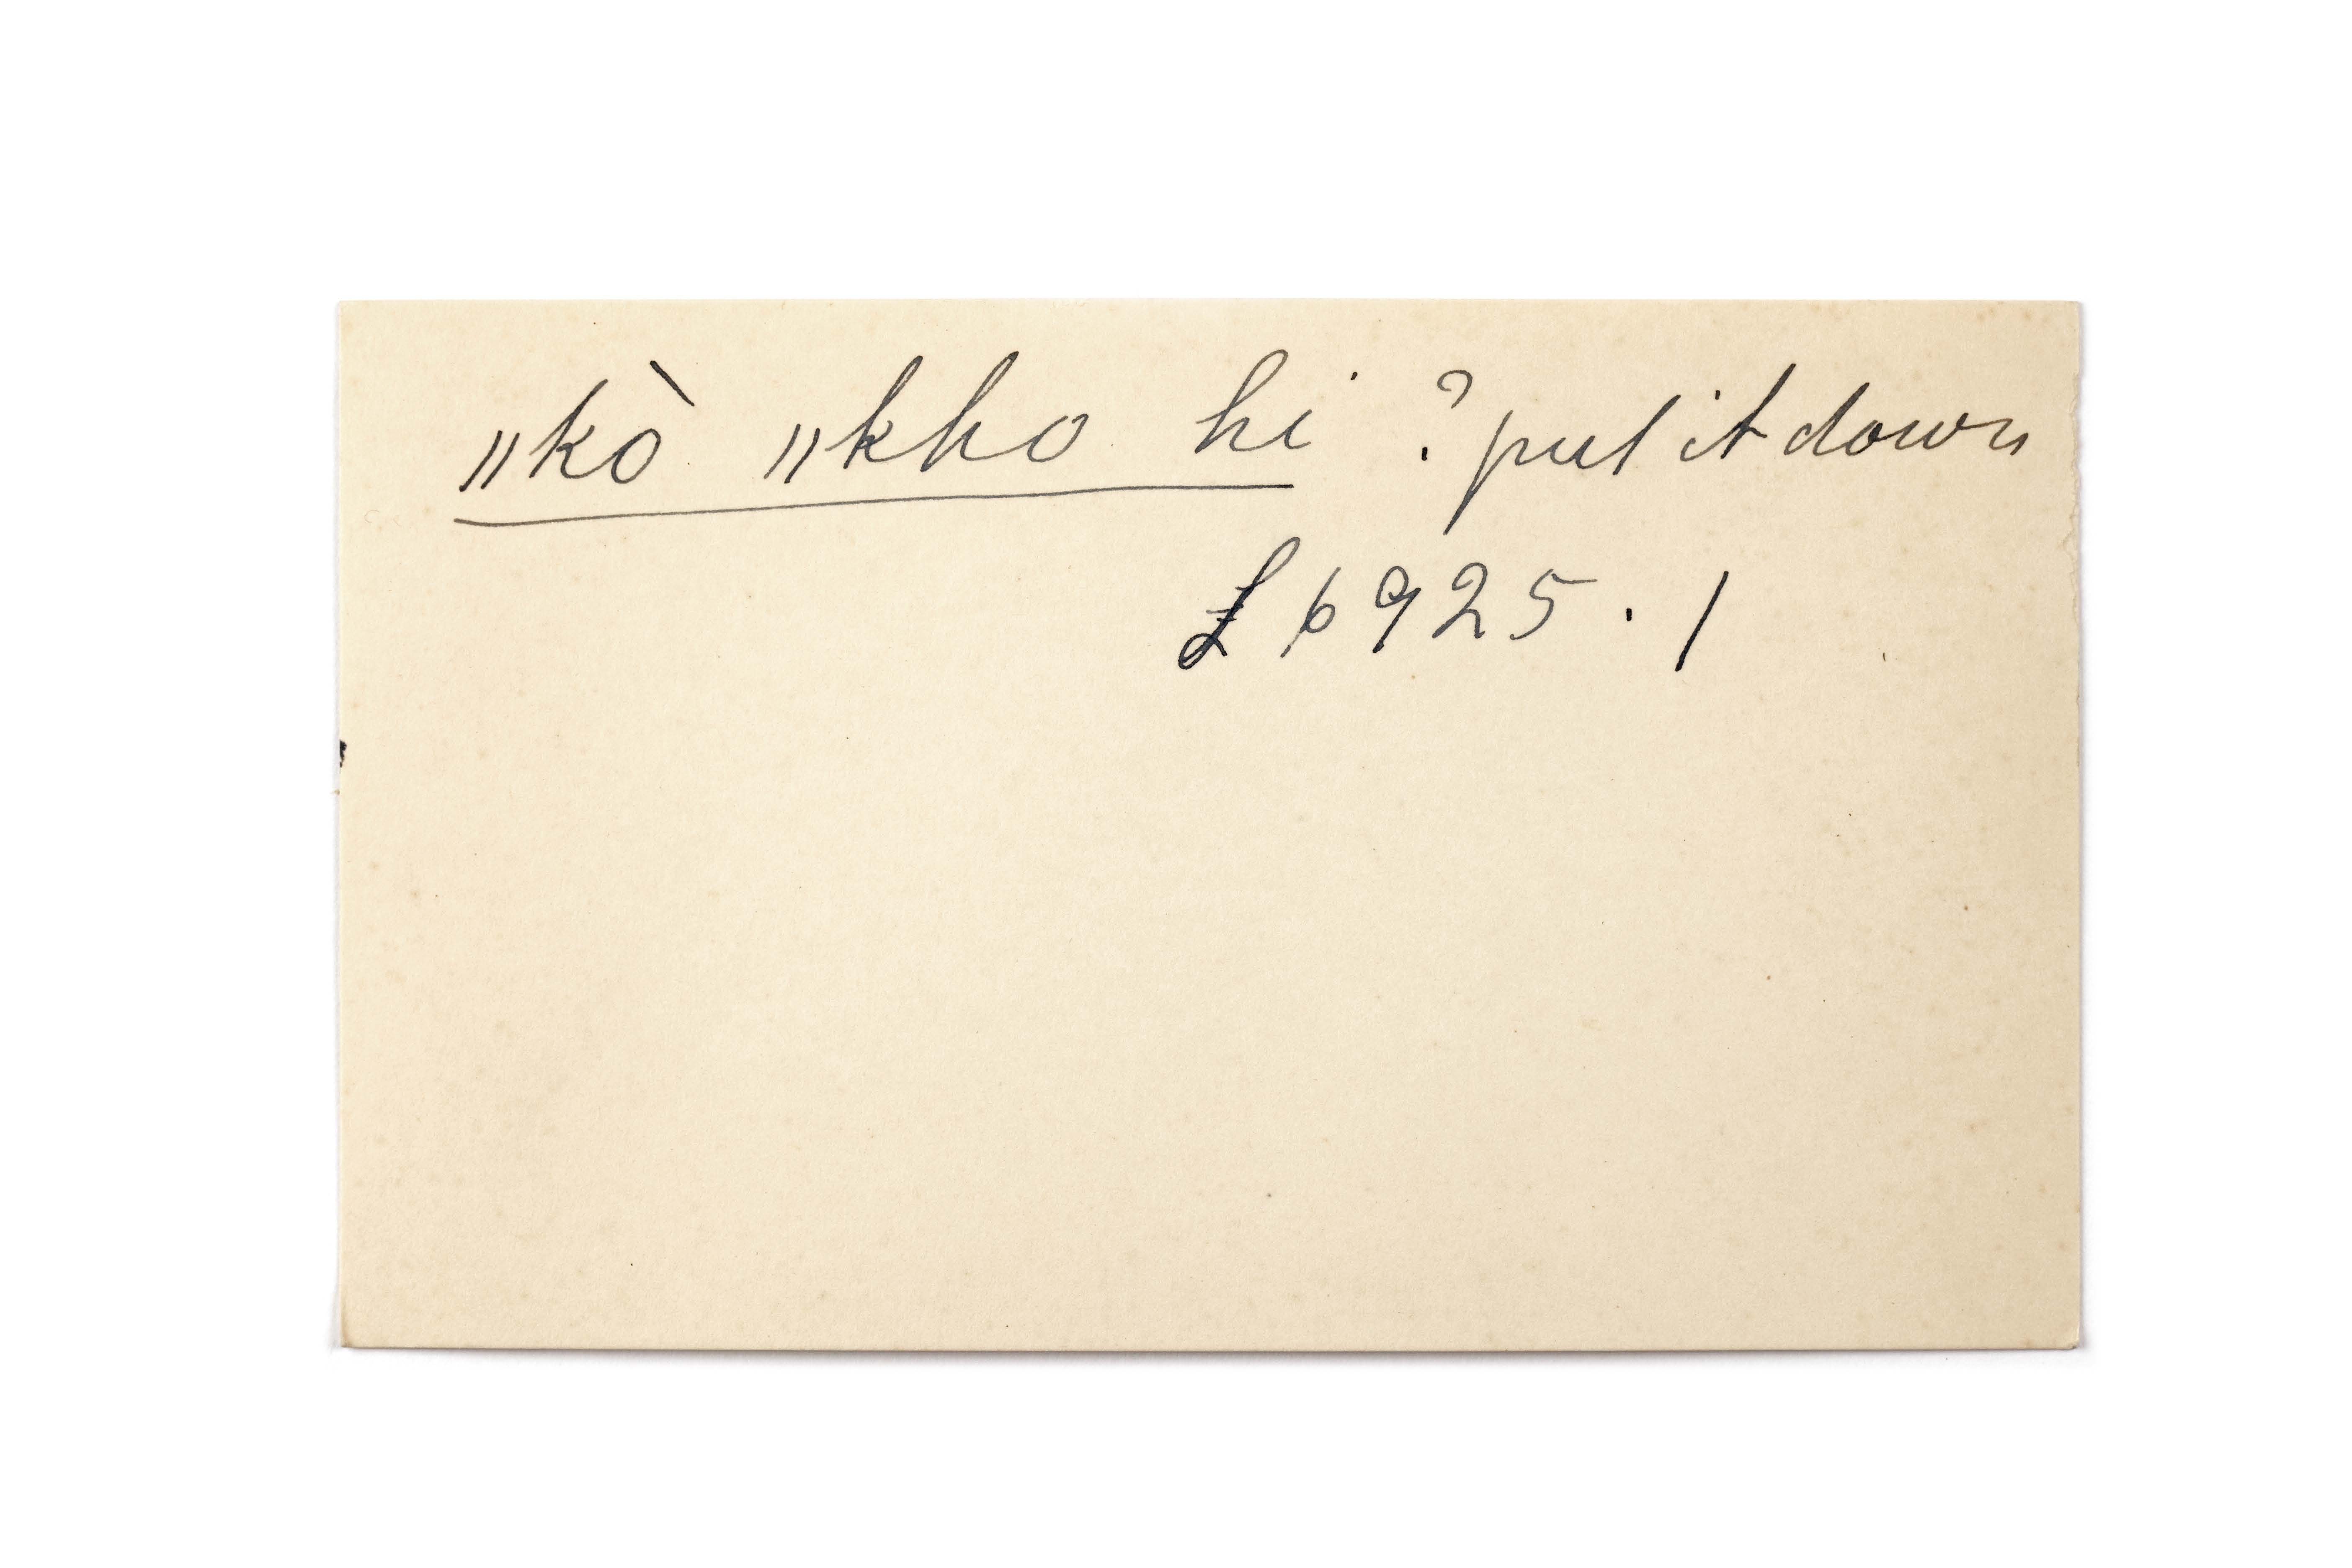 ‖kò ‖kho hi ? put it down
£ 6925 . 1